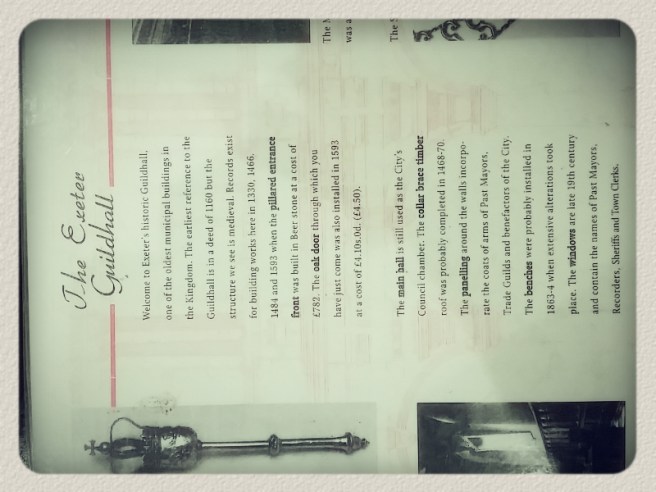 The Exeter
Guildhall
Welcome to Exeter's historic Guildhall,
one of the oldest municipal buildings in
the Kingdom. The earliest reference to the
Guildhall is in a deed of 1160 but the
structure we see is medieval. Records exist
for building works here in 1330, 1466,
1484 and 1593 when the pillared entrance
front was built in Beer stone at a cost of
£782. The oak door through which you
have just come was also installed in 1593
at a cost of £4.10s.0d. (£4.50).
The main hall is still used as the City's
Council chamber. The collar brace timber
roof was probably completed in 1468-70.
The panelling around the walls incorpo-
rate the coats of arms of Past Mayors,
Trade Guilds and benefactors of the City.
The benches were probably installed in
1863-4 when extensive alterations took
place. The windows are late 19th century
and contain the names of Past Mayors,
Recorders, Sheriffs and Town Clerks.
The
was a
The S